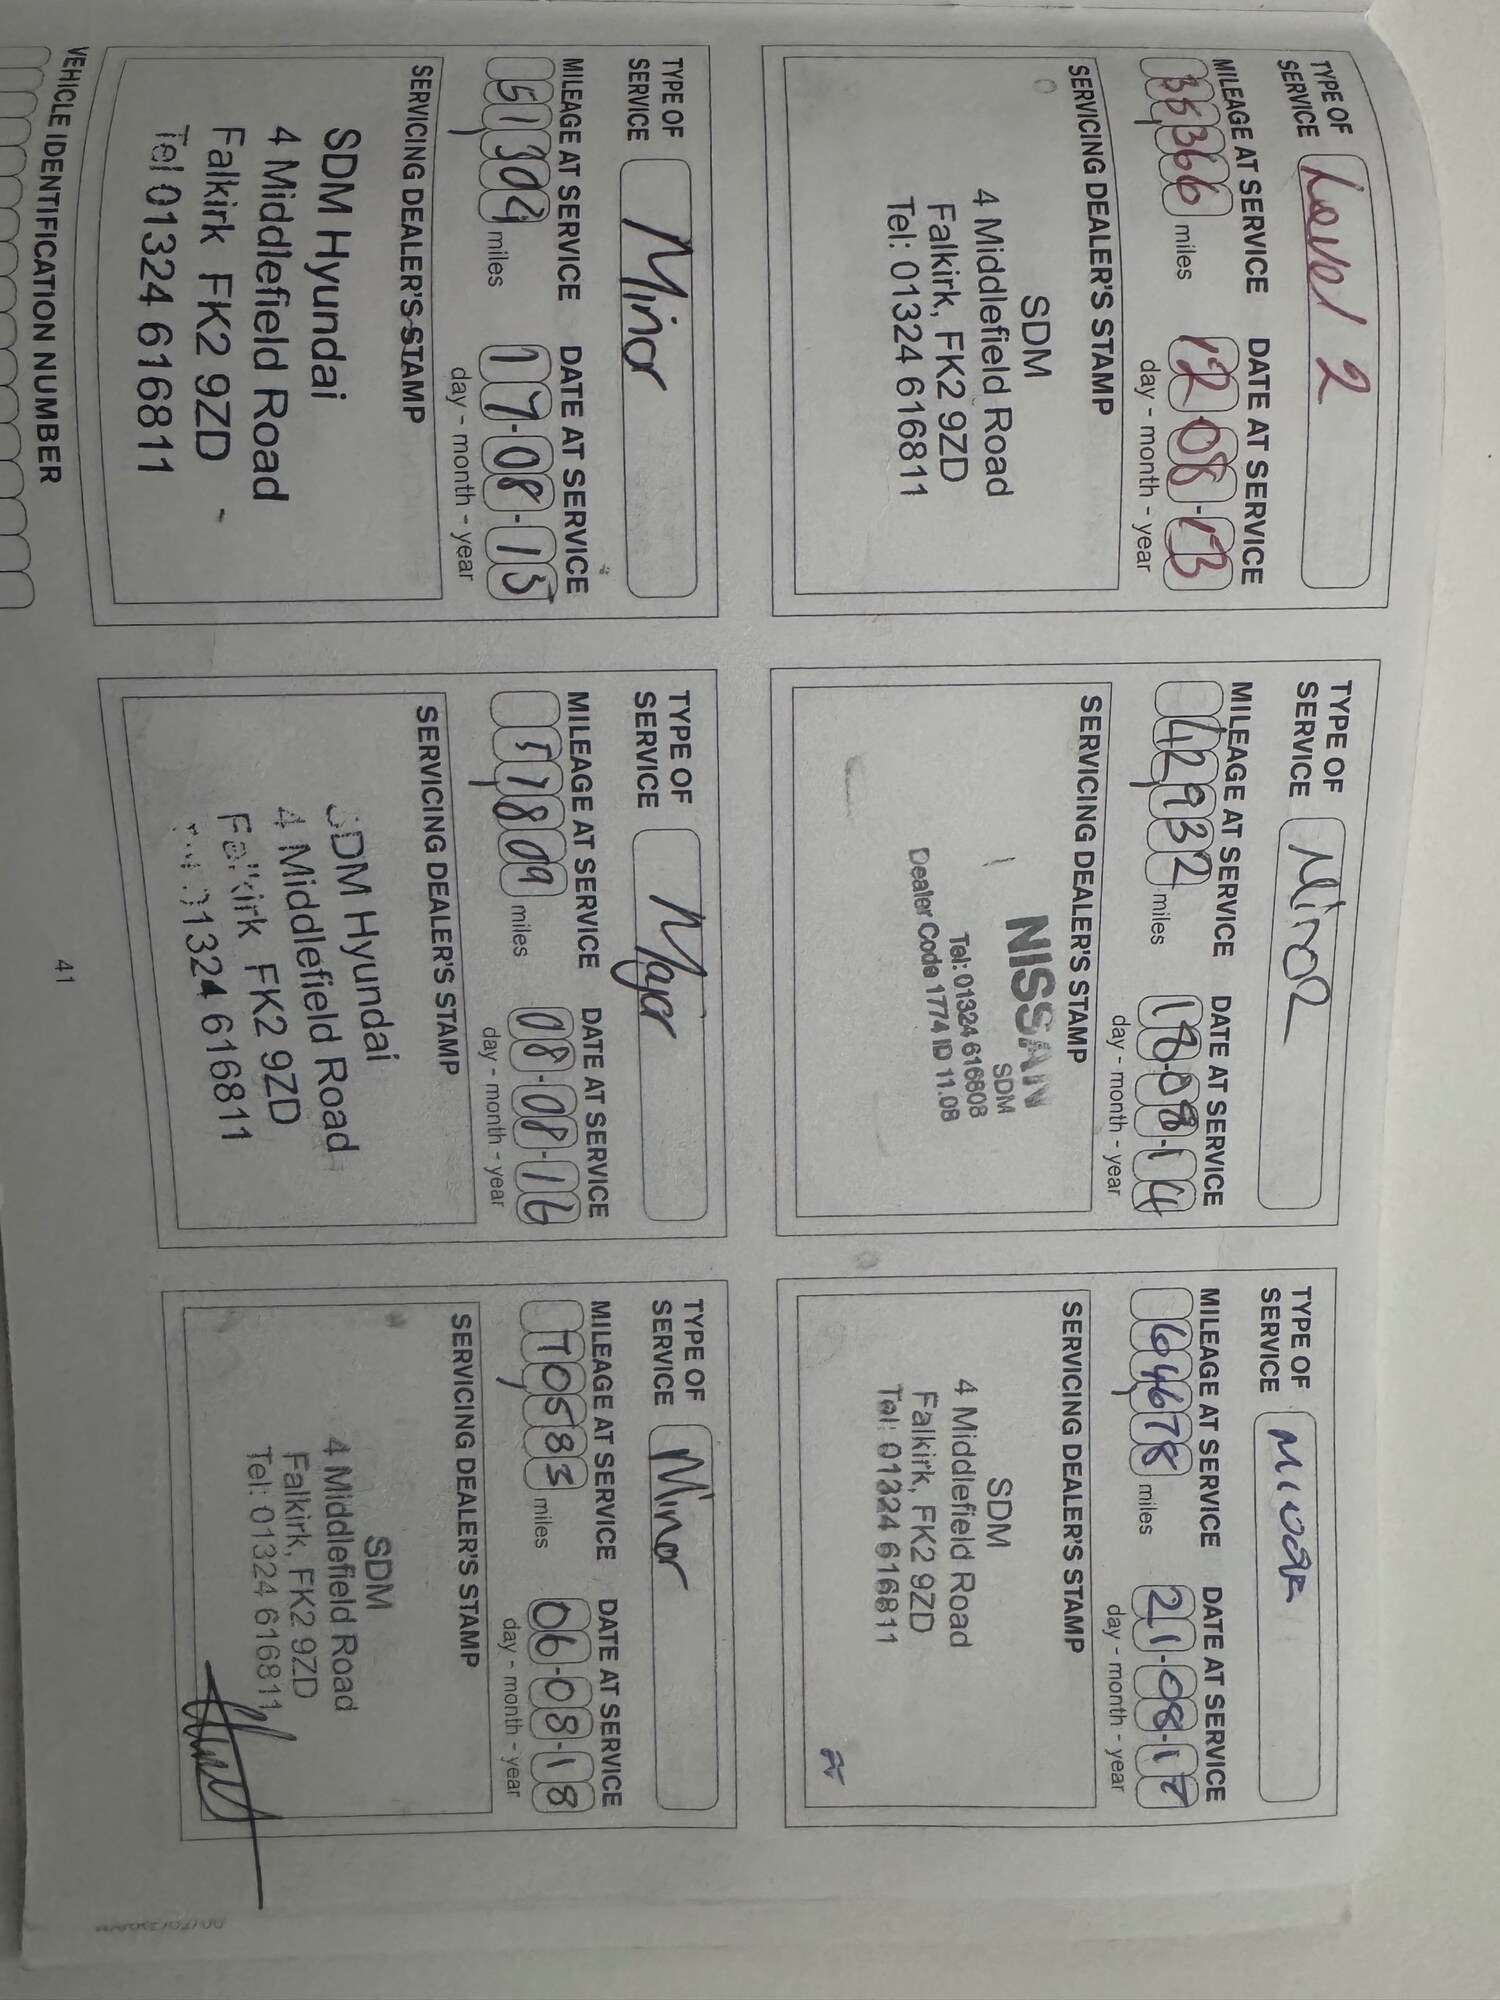 TYPE OF
SERVICE Level 2
MILEAGE AT SERVICE DATE AT SERVICE
35,366 miles 12-08-13
day - month - year
SERVICING DEALER'S STAMP
SDM
4 Middlefield Road
Falkirk, FK2 9ZD
Tel: 01324 616811
TYPE OF
SERVICE Minor
MILEAGE AT SERVICE DATE AT SERVICE
42,932 miles 18-08-14
day - month - year
SERVICING DEALER'S STAMP
NISSAN
SDM
Tel: 01324 616808
Dealer Code 1774 ID 11.08
TYPE OF
SERVICE Minor
MILEAGE AT SERVICE DATE AT SERVICE
64,678 miles 21-08-17
day - month - year
SERVICING DEALER'S STAMP
SDM
4 Middlefield Road
Falkirk, FK2 9ZD
Tel: 01324 616811
TYPE OF
SERVICE Minor
MILEAGE AT SERVICE DATE AT SERVICE
51,304 miles 17-08-15
day - month - year
SERVICING DEALER'S STAMP
SDM Hyundai
4 Middlefield Road
Falkirk FK2 9ZD
Tel 01324 616811
TYPE OF
SERVICE Major
MILEAGE AT SERVICE DATE AT SERVICE
57,809 miles 08-08-16
day - month - year
SERVICING DEALER'S STAMP
SDM Hyundai
4 Middlefield Road
Falkirk FK2 9ZD
01324 616811
TYPE OF
SERVICE Minor
MILEAGE AT SERVICE DATE AT SERVICE
70,583 miles 06-08-18
day - month - year
SERVICING DEALER'S STAMP
SDM
4 Middlefield Road
Falkirk, FK2 9ZD
Tel: 01324 616811
VEHICLE IDENTIFICATION NUMBER
41